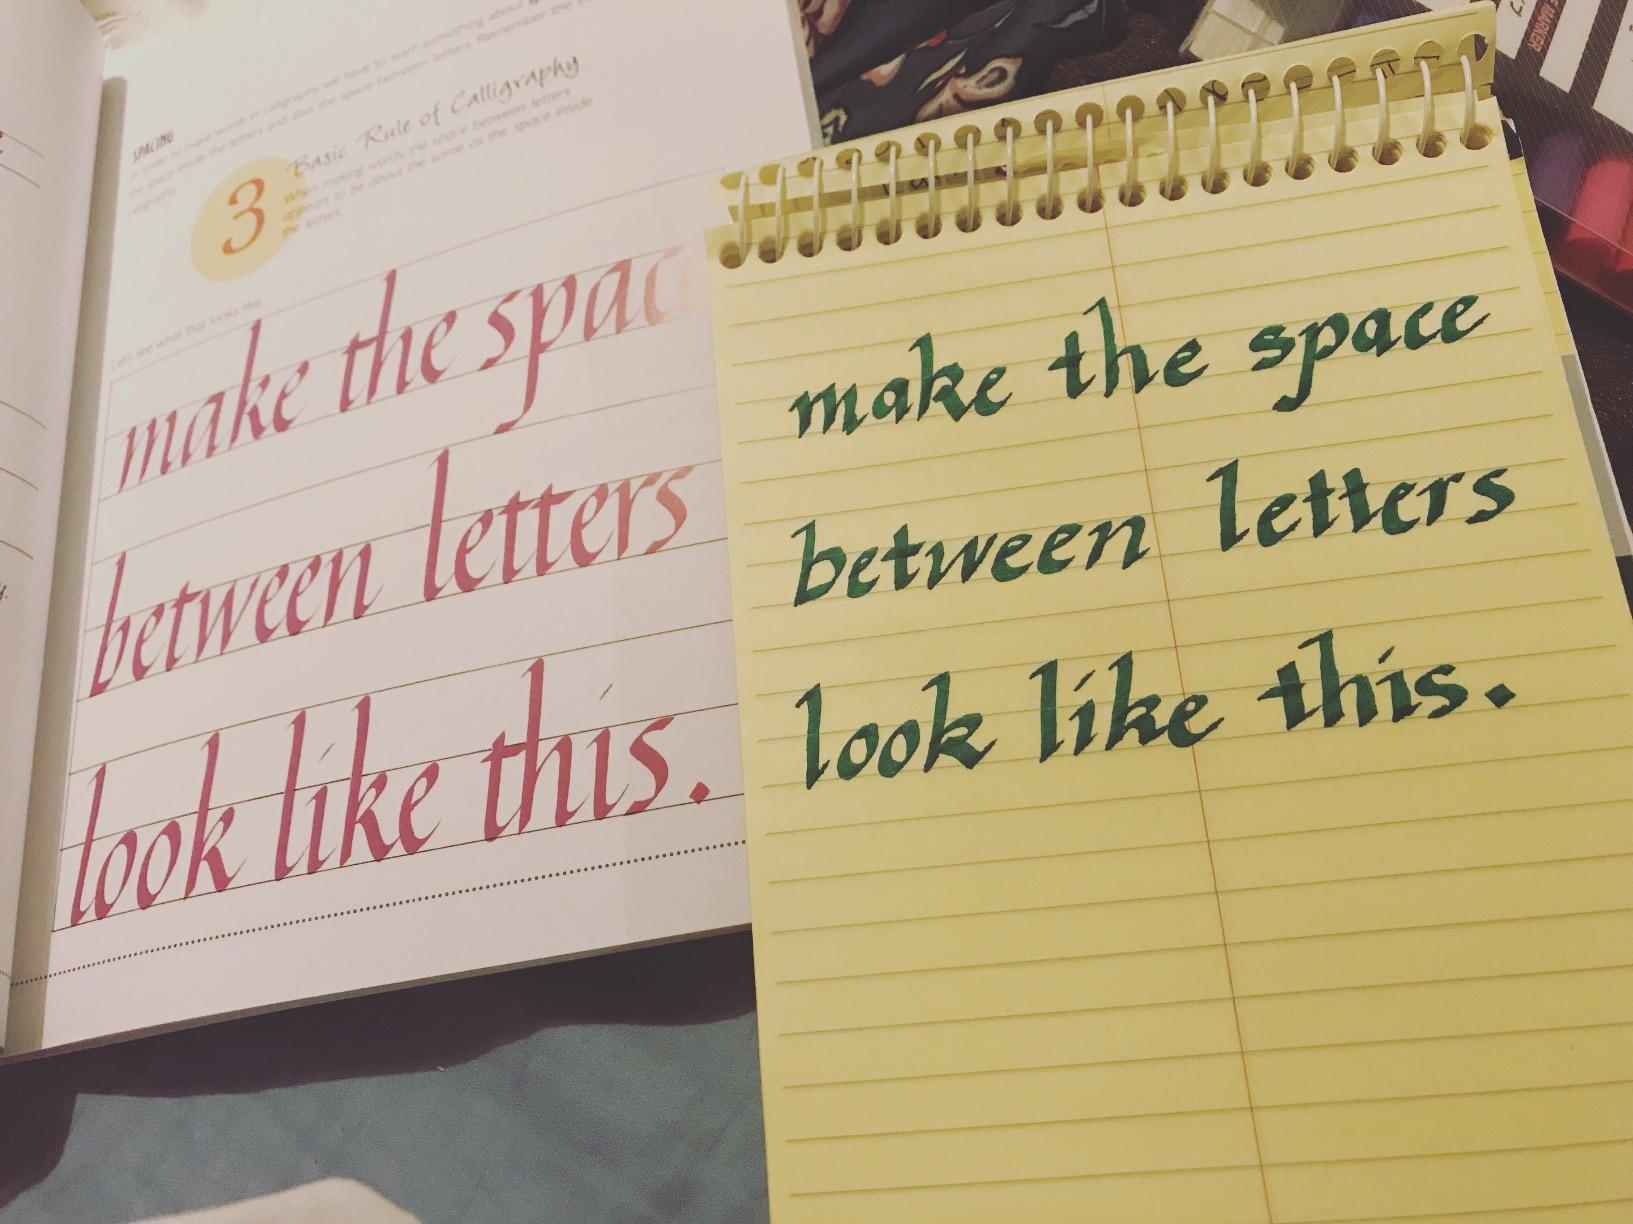 SPACING
In order to make words in calligraphy we have to learn something about
the space inside the letters and also the space between letters. Remember the
calligraphy
3
Basic Rule of Calligraphy
When making words, the space between letters
appears to be about the same as the space inside
the letters.
Let's see what that looks like.
make the space
between letters
look like this.
make the space
between letters
look like this.
MARKER